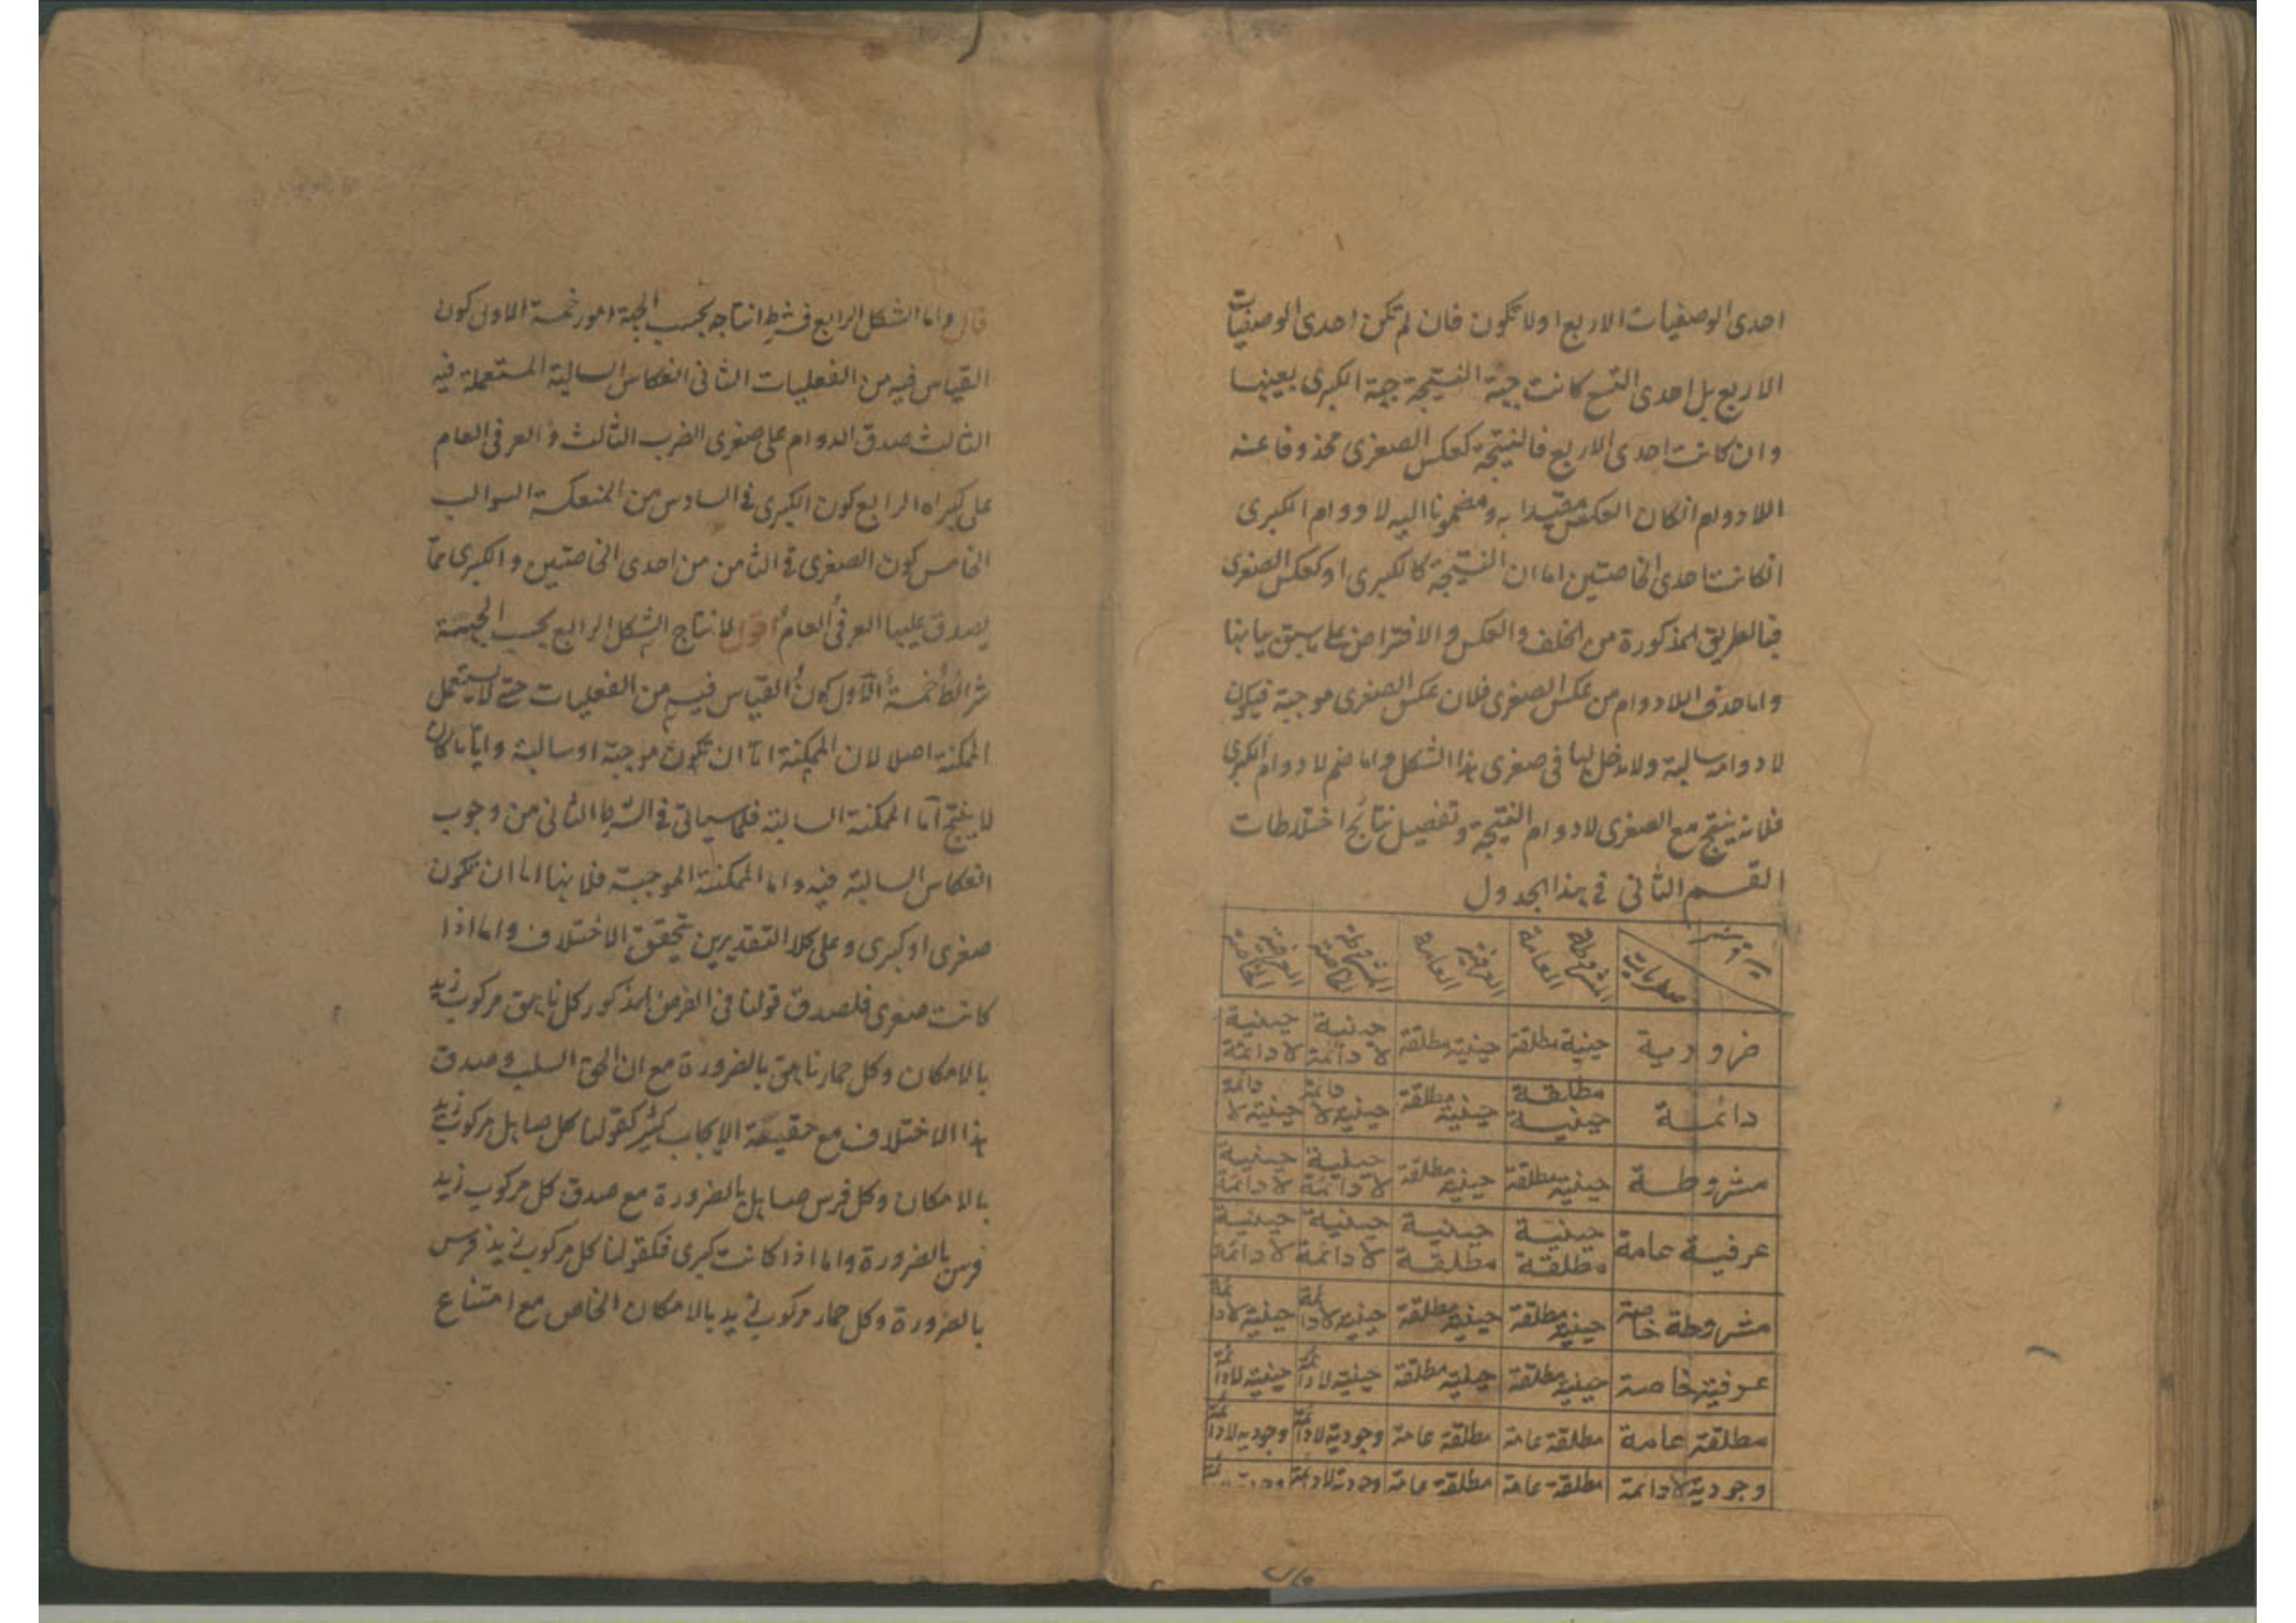 احدى الوصفيات الاربع اولا تكون فان لم تكن احدى الوصفيات
الاربع بل احدى التسع كانت جهة النتيجة جهة الكبرى بعينها
وان كانت احدى الاربع فالنتيجة كعكس الصغرى محذوفا عنه
اللادوام انكان العكس مقيدا به ومضموما اليه لا دوام الكبرى
انكانت احدى الخاصتين اما ان النتيجة كالكبرى او كعكس الصغرى
فبالطريق المذكورة من الخلف والعكس والافتراض على ما سبق بيانها
واما حذف اللادوام من عكس الصغرى فلان عكس الصغرى موجبة فيكون
لا دوامه سالبة ولا دخل لها فى صغرى هذا الشكل واما ضم لا دوام الكبرى
فلانه ينتج مع الصغرى لا دوام النتيجة وتفصيل نتائج اختلاطات
القسم الثانى فى هذا الجدول
صغريات المشروطة العامة العرفية العامة المشروطة الخاصة العرفية الخاصة
ضرورية حينية مطلقة حينية مطلقة حينية لا دائمة حينية لا دائمة
دائمة مطلقة حينية حينية مطلقة حينية لا دائمة حينية لا دائمة
مشروطة حينية مطلقة حينية مطلقة حينية لا دائمة حينية لا دائمة
عرفية عامة حينية مطلقة حينية مطلقة حينية لا دائمة حينية لا دائمة
مشروطة خاصة حينية مطلقة حينية مطلقة حينية لا دائمة حينية لا دائمة
عرفية خاصة حينية مطلقة حينية مطلقة حينية لا دائمة حينية لا دائمة
مطلقة عامة مطلقة عامة مطلقة عامة وجودية لا دائمة وجودية لا دائمة
وجودية لا دائمة مطلقة عامة مطلقة عامة وجودية لا دائمة
قال واما الشكل الرابع فشرط انتاجه بحسب الجهة امور خمسة الاول كون
القياس فيه من الفعليات الثانى انعكاس السالبة المستعملة فيه
الثالث صدق الدوام على صغرى الضرب الثالث و العرفى العام
على كبراه الرابع كون الكبرى فى السادس من المنعكسة السوالب
الخامس كون الصغرى فى الثامن من احدى الخاصتين و الكبرى مما
يصدق عليها العرفى العام اقول لانتاج الشكل الرابع بحسب الجهة
شرائط خمسة الاول كون القياس فيه من الفعليات حتى لا يستعمل
الممكنة اصلا لان الممكنة اما ان تكون موجبة او سالبة وايا ما كان
لا ينتج اما الممكنة السالبة فلما سياتى فى الشرط الثانى من وجوب
انعكاس السالبة فيه واما الممكنة الموجبة فلانها اما ان تكون
صغرى او كبرى وعلى كلا التقديرين تحقق الاختلاف واما اذا
كانت صغرى فلصدق قولنا فى الفرض المذكور كل ناهق مركوب زيد
بالامكان وكل حمار ناهق بالضرورة مع ان الحق السلب وصدق
هذا الاختلاف مع حقيقة الايجاب كثير كقولنا كل صاهل مركوب زيد
بالامكان وكل فرس صاهل بالضرورة مع صدق كل مركوب زيد
فرس بالضرورة واما اذا كانت كبرى فكقولنا كل مركوب زيد فرس
بالضرورة وكل حمار مركوب زيد بالامكان الخاص مع امتناع